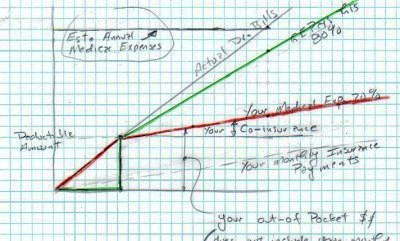 Est. Annual
Medical Expenses
Actual Dr. Bills
80%
Your Medical Exp. 20%
Deductible
Amount
Your Co-insurance
Your monthly Insurance
Payments
your out-of Pocket $$